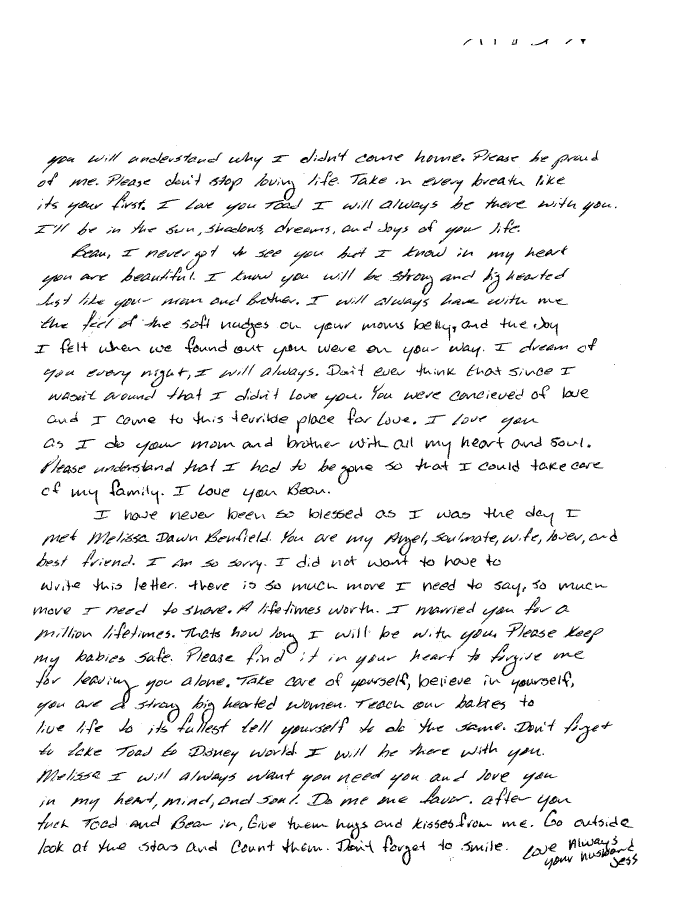 you will understand why I didn't come home. Please be proud
of me. Please don't stop loving life. Take in every breath like
its your first. I love you Toad I will always be there with you.
I'll be in the sun, shadows, dreams, and Joys of your life.
Bean, I never got to see you but I know in my heart
you are beautiful. I know you will be strong and big hearted
Just like your mom and brother. I will always have with me
the feel of the soft nudges on your moms belly, and the Joy
I felt when we found out you were on your way. I dream of
you every night, I will always. Don't ever think that since I
wasn't around that I didn't love you. You were concieved of love
and I came to this terrible place for love. I love you
as I do your mom and brother with all my heart and soul.
Please understand that I had to be gone so that I could take care
of my family. I love you Bean.
I have never been so blessed as I was the day I
met Melissa Dawn Benfield. You are my Angel, soulmate, wife, lover, and
best friend. I am so sorry. I did not want to have to
write this letter. there is so much more I need to say, so much
more I need to share. A lifetimes worth. I married you for a
million lifetimes. Thats how long I will be with you. Please keep
my babies safe. Please find it in your heart to forgive me
for leaving you alone. Take care of yourself, believe in yourself,
you are a strong big hearted women. Teach our babies to
live life to its fullest tell yourself to do the same. Don't forget
to take Toad to Disney world. I will be there with you.
Melissa I will always want you need you and love you
in my heart, mind, and soul. Do me one favor. after you
tuck Toad and Bean in, Give them hugs and kisses from me. Go outside
look at the stars and Count them. Don't forget to smile.
Love Always
your husband
Jess